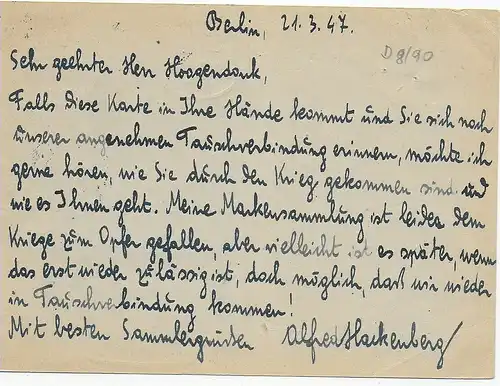 Berlin, 21.3.47.
D 9/90
Sehr geehrter Herr Hoogendonk,
Falls diese Karte in Ihre Hände kommt und Sie sich noch
unserer angenehmen Tauschverbindung erinnern, möchte ich
gerne hören, wie Sie durch den Krieg gekommen sind und
wie es Ihnen geht. Meine Markensammlung ist leider dem
Kriege zum Opfer gefallen, aber vielleicht ist es später, wenn
das erst wieder zulässig ist, doch möglich, daß wir wieder
in Tauschverbindung kommen!
Mit besten Sammlergrüßen Alfred Hackenberg